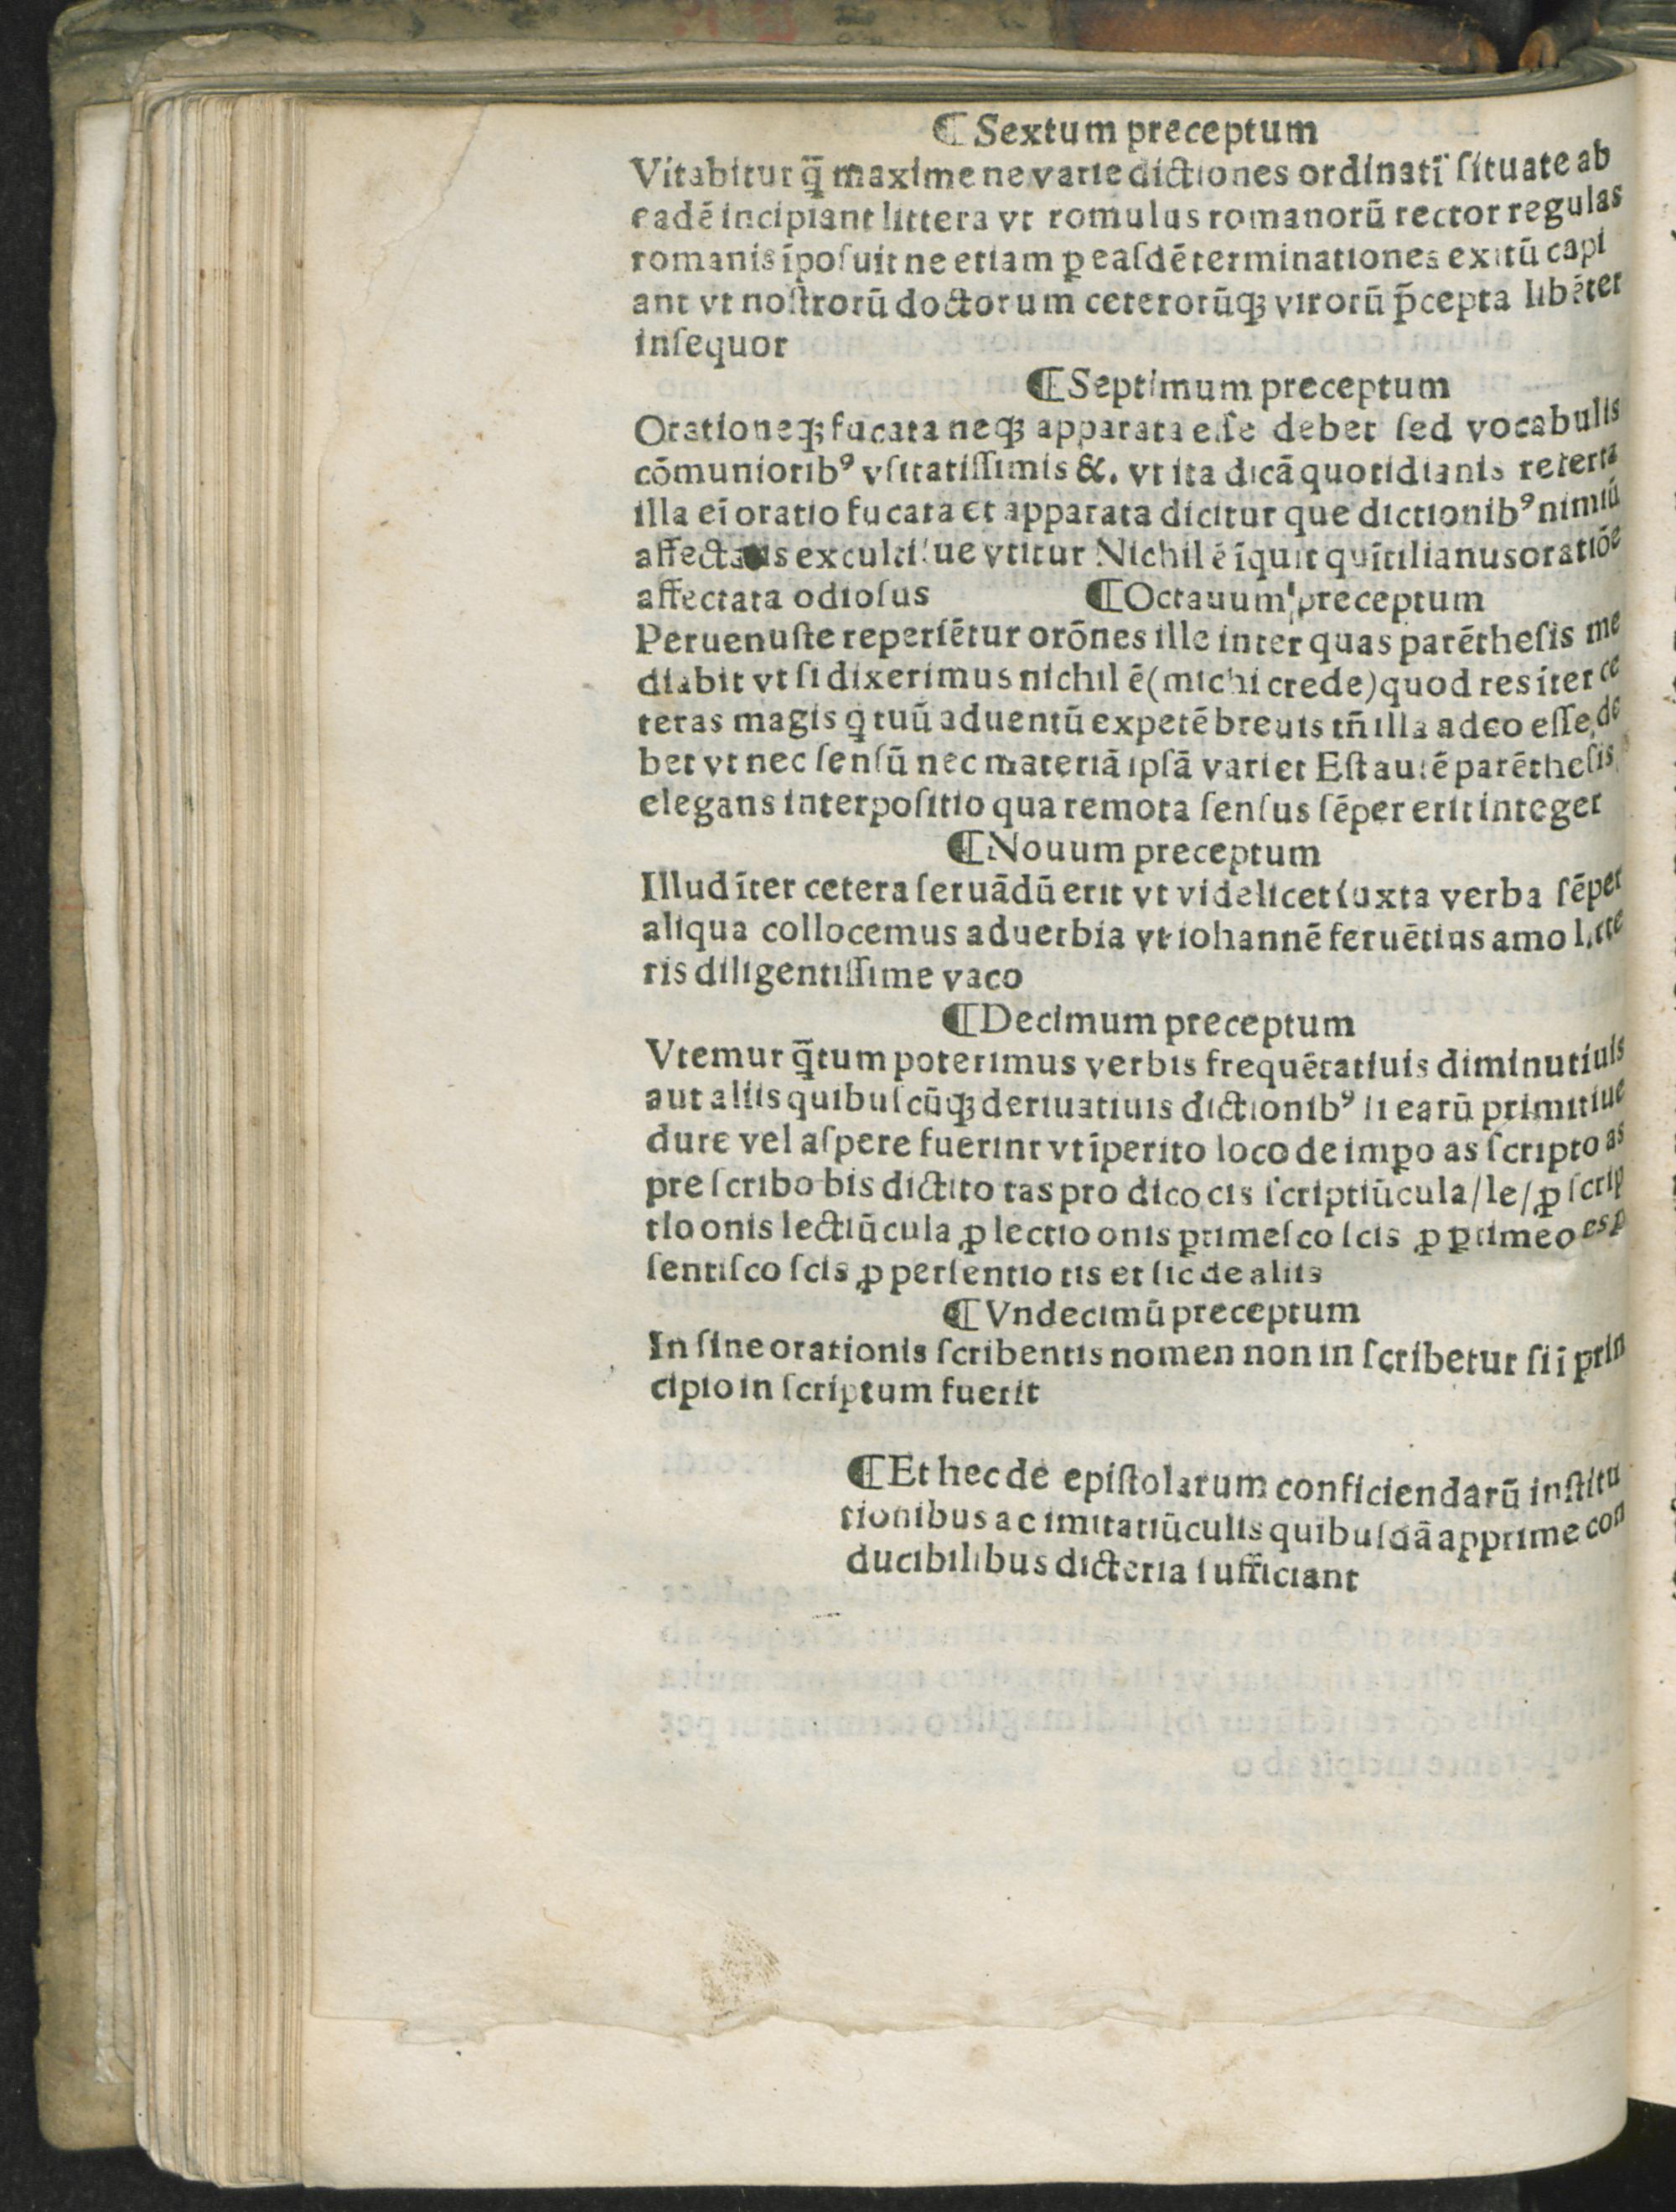 ¶ Sextum preceptum
Vitabitur q̃ maxime ne varie dictiones ordinatī ſituate ab
eadē incipiant littera vt romulus romanorū rector regulas
romanis īpoſuit ne etiam ꝑ eaſdē terminationes exitū capi
ant vt noſtrorū doctorum ceterorūqꝫ virorū p̄cepta libēter
inſequor
¶ Septimum preceptum
Oratio neqꝫ fucata neqꝫ apparata eſſe debet ſed vocabulis
cōmuniorib⁹ vſitatiſſimis &. vt ita dicā quotidianis referta
illa eī oratio fucata et apparata dicitur que dictionib⁹ nimiū
affectatis excultiſue vtitur Nichil ē īquit quītilianus oratiōe
affectata odioſus ¶ Octauum preceptum
Peruenuſte reperiētur orōnes ille inter quas parētheſis me
diabit vt ſi dixerimus nichil ē (michi crede) quod res īter ce
teras magis q̄ tuū aduentū expetē breuis tñ illa adeo eſſe de
bet vt nec ſenſū nec materiā ipſā variet Eſt autē parētheſis
elegans interpoſitio qua remota ſenſus ſēper erit integer
¶ Nouum preceptum
Illud īter cetera ſeruādū erit vt videlicet iuxta verba ſēper
aliqua collocemus aduerbia vt iohannē feruētius amo litte
ris diligentiſſime vaco
¶ Decimum preceptum
Vtemur q̃tum poterimus verbis frequētatiuis diminutiuis
aut aliis quibuſcūqꝫ deriuatiuis dictionib⁹ ſi earū primitiue
dure vel aſpere fuerint vt īperito loco de impo as ſcripto as
pre ſcribo bis dictito tas pro dico cis ſcriptiūcula/le/ꝓ ſcrip
tio onis lectiūcula ꝓ lectio onis ꝑtimeſco ſcis ꝓ ꝑtimeo es ꝑ
ſentiſco ſcis ꝓ perſentio tis et ſic de aliis
¶ Vndecimū preceptum
In fine orationis ſcribentis nomen non in ſcribetur ſi ī prin
cipio in ſcriptum fuerit
¶ Et hec de epiſtolarum conficiendarū inſtitu
tionibus ac imitatiūculis quibuſdā apprime con
ducibilibus dicteria ſufficiant